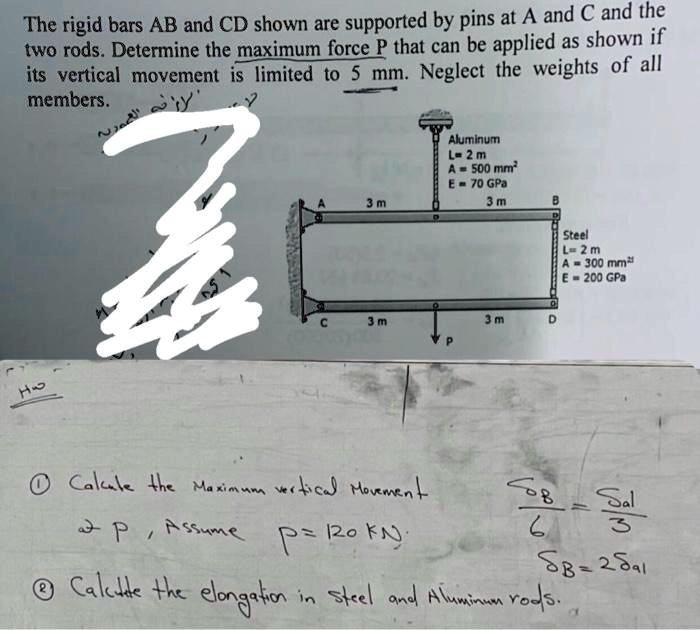 The rigid bars AB and CD shown are supported by pins at A and C and the
two rods. Determine the maximum force P that can be applied as shown if
its vertical movement is limited to 5 mm. Neglect the weights of all
members.
Aluminum
L= 2 m
A = 500 mm²
E = 70 GPa
A 3 m 3 m B
Steel
L= 2 m
A = 300 mm²
E = 200 GPa
C 3 m 3 m D
P
Hw
① Calculate the Maximum vertical Movement
at P , Assume P= 120 KN.
δB/6 = δal/3
δB = 2δal
② Calculate the elongation in steel and Aluminum rods.